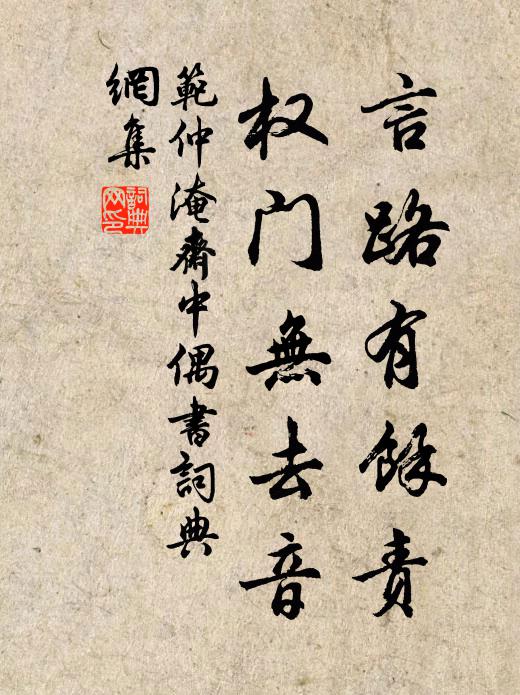 言路有餘責
权門無去音
範仲淹齋中偶書詞典
網集
詞典網印